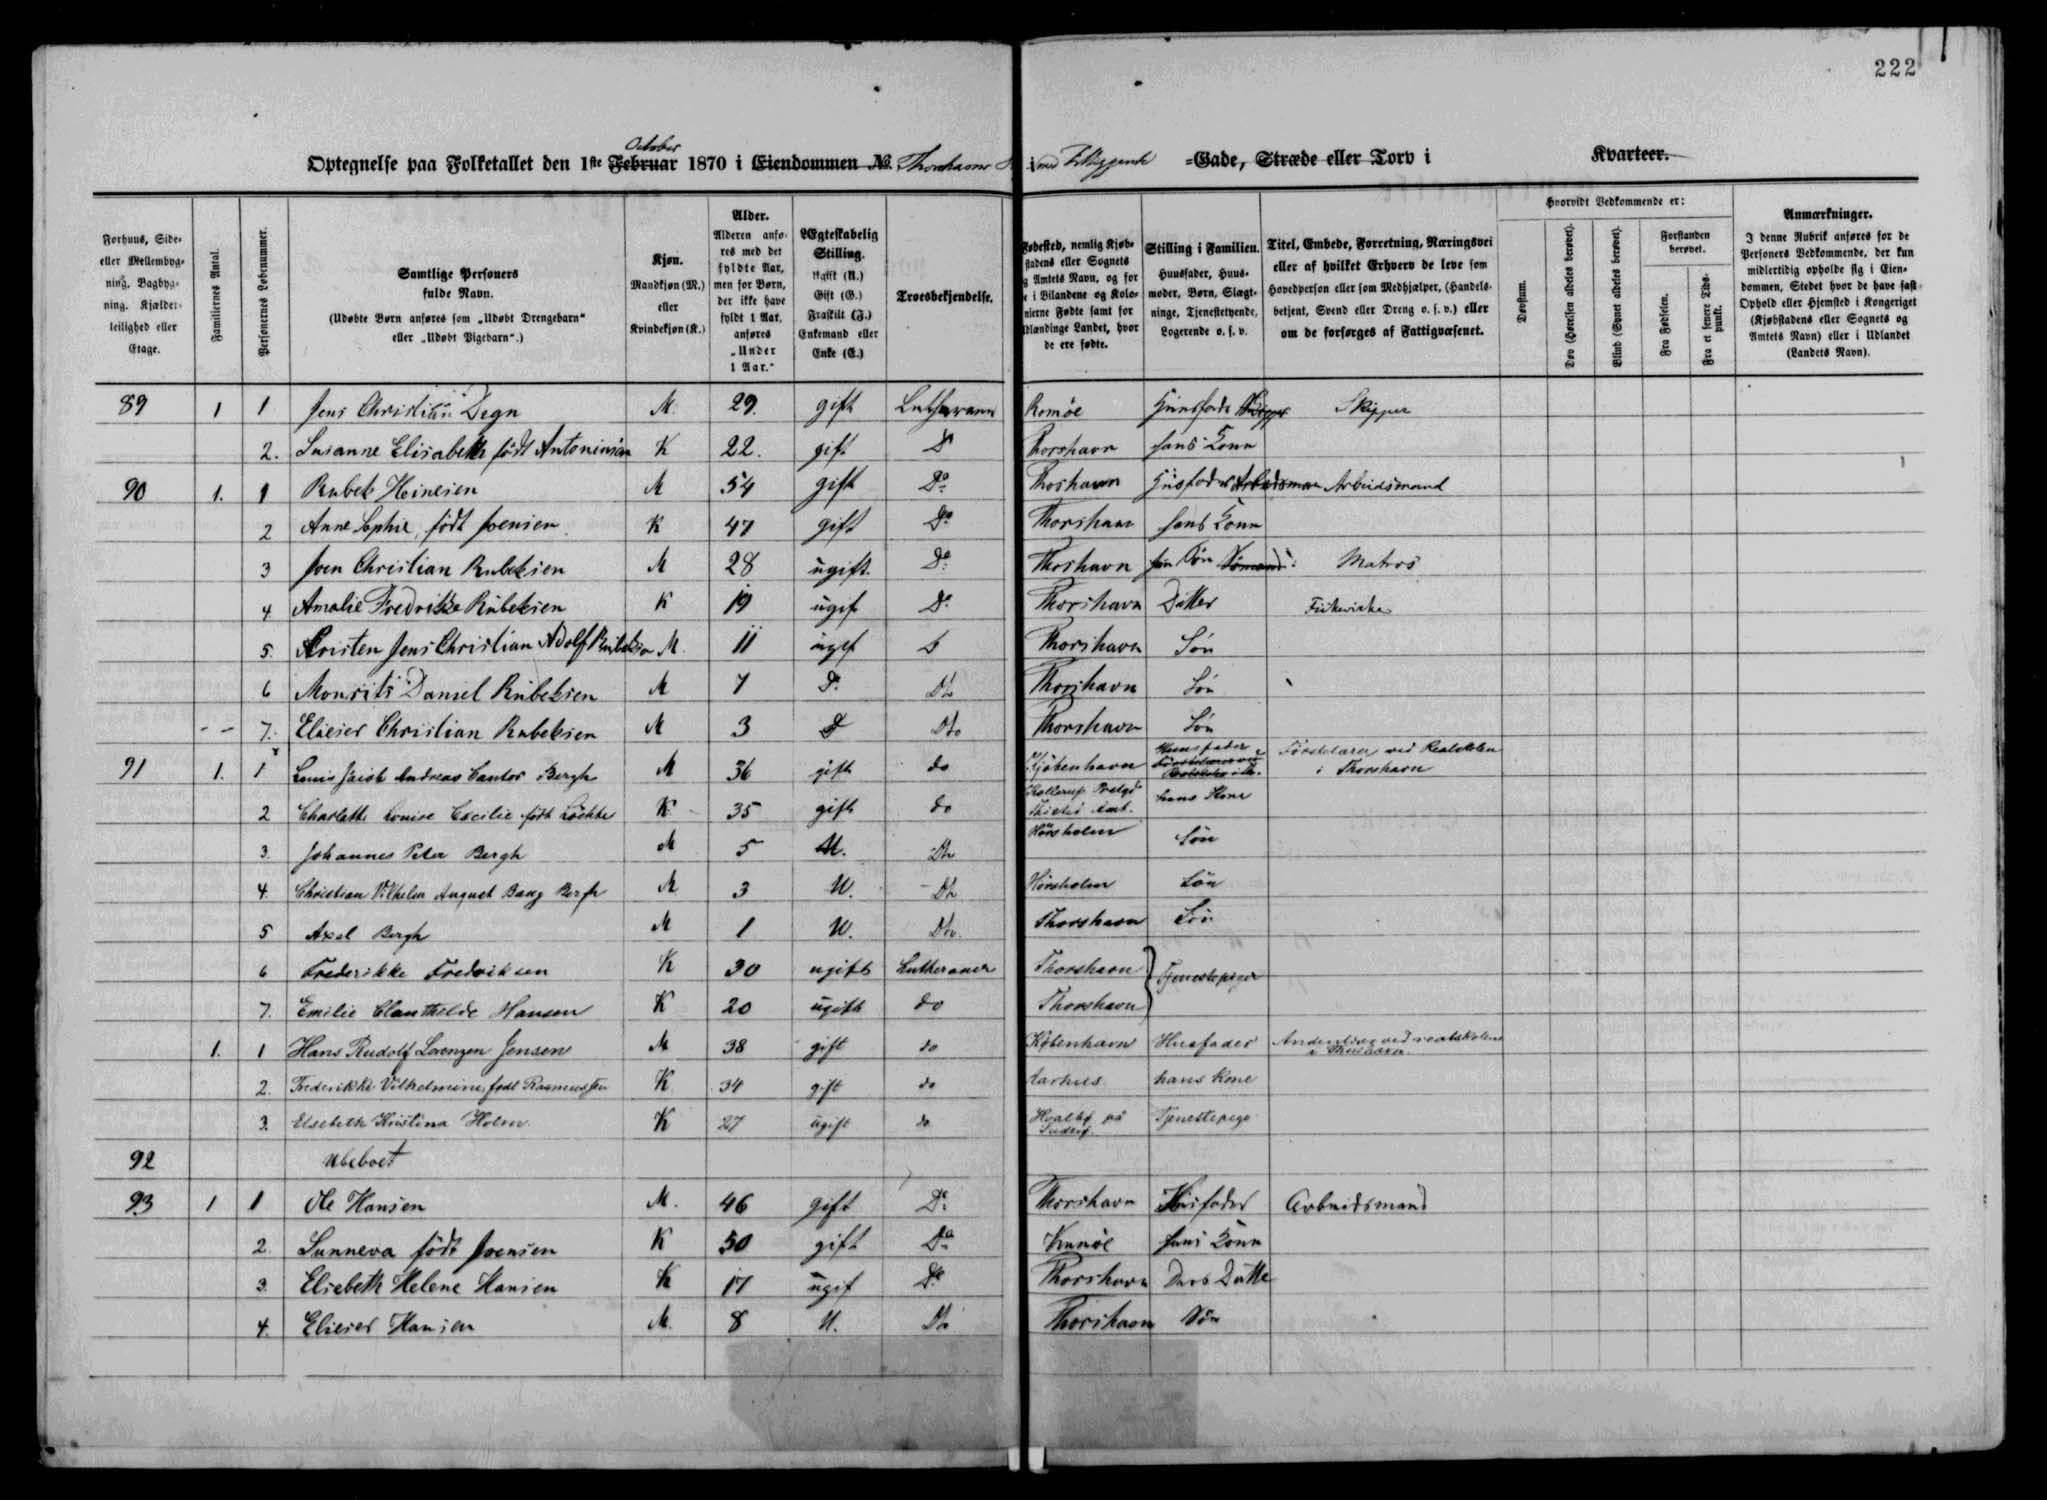 222
October
Optegnelse paa Folketallet den 1ste Februar 1870 i Eiendommen No. Thorshavn med Tilliggende =Gade, Stræde eller Torv i Kvarteer.
Forhuus, Side- eller Mellembyg- ning, Bagbyg- ning. Kjælder- leilighed eller Etage.
Familiernes Antal.
Personernes Løbenummer.
Samtlige Personers fulde Navn.
(Udøbte Børn anføres som „Udøbt Drengebarn“ eller „Udøbt Pigebarn“.)
Kjøn.
Mandkjøn (M.) eller Kvindekjøn (K.)
Alder.
Alderen anfø- res med det fyldte Aar, men for Børn, der ikke have fyldt 1 Aar, anføres „Under 1 Aar.“
Ægteskabelig Stilling.
Ugift (U.) Gift (G.) Fraskilt (F.) Enkemand eller Enke (E.)
Troesbekjendelse.
Fødested, nemlig Kjøb- stadens eller Sognets og Amtets Navn, og for de i Bilandene og Kolo- nierne Fødte samt for Udlændinge Landet, hvor de ere fødte.
Stilling i Familien.
Huusfader, Huus- moder, Børn, Slægt- ninge, Tjenestetyende, Logerende o. s. v.
Titel, Embede, Forretning, Næringsvei eller af hvilket Erhverv de leve som Hovedperson eller som Medhjælper, (Handels- betjent, Svend eller Dreng o. s. v.) eller om de forsørges af Fattigvæsenet.
Hvorvidt Vedkommende er:
Døvstum.
Døv (Hørelsen aldeles berøvet).
Blind (Synet aldeles berøvet).
Forstanden berøvet.
Fra Fødselen.
Fra et senere Tids- punkt.
Anmærkninger.
I denne Rubrik anføres for de Personers Vedkommende, der kun midlertidig opholde sig i Eien- dommen, Stedet hvor de have fast Ophold eller Hjemsted i Kongeriget (Kjøbstadens eller Sognets og Amtets Navn) eller i Udlandet (Landets Navn).
89 1 1 Jens Christian Degn M. 29. gift Lutheraner Romöe Huusfader Skipper Skipper
2. Susanne Elisabeth födt Antoniusen K 22. gift D Thorshavn hans Kone
90 1. 1 Rubek Heinesen M 54 gift Do Thoshavn Husfader Arbeidsman Arbeidsmand
2 Anne Sophie, födt Joensen K 47 gift Do Thorshavn hans Kone
3 Joen Christian Rubeksen M 28 ugift. Do Thoshavn Sön Sömand Matros
4 Amalie Fredrikke Rubeksen K 19 ugift Do Thorshavn Datter
5. Kristen Jens Christian Adolf Rubeksen M. 11 ugift D Thorshavn Sön
6 Mourits Daniel Rubeksen M 7 Do Dto Thorshavn Sön
7. Elieser Christian Rubeksen M 3 D Dto Thorshavn Sön
91 1. 1 Louis Andreas Cantor Bergh M 36 gift do Kjöbenhavn Huusfader Förstelærer ved Realskolen i Thorshavn
2 Charlotte Louise Cecilie födt Löchte K 35 gift do Kollerup Thisted Amt. hans Kone
3. Johannes Peter Bergh M 5 U. Dto Hörsholm Sön
4. Christian Vilhelm August Bang Bergh M. 3 U. Dto Hörsholm Sön
5 Axel Bergh M 1 U. Dto. Thorshavn Sön
6 Frederikke Fredriksen K 30 ugift Lutheraner Thorshavn Tjenestepiger
7. Emilie Clauthilde Hansen K 20 ugift do Thorshavn
1. 1 Hans Rudolf Lorenzen Jensen M 38 gift do København Husfader Andenlærer ved realskolen i Thorshavn
2. Frederikke Vilhelmine, født Rasmussen K 34 gift do Aarhus. hans kone
3. Elsebeth Kristina Holm K 27 ugift do Hvalbø på Suderø. Tjenestepige
92 Ubeboet
93 1 1 Ole Hansen M. 46 gift Do Thorshavn Husfader Arbeidsmand
2. Sunneva födt Joensen K 50 gift Do Kunöe hans Kone
3. Elsebeth Helene Hansen K 17 ugift Do Thorshavn Deres Datter
4. Elieser Hansen M. 8 U. Dto Thorshavn Sön